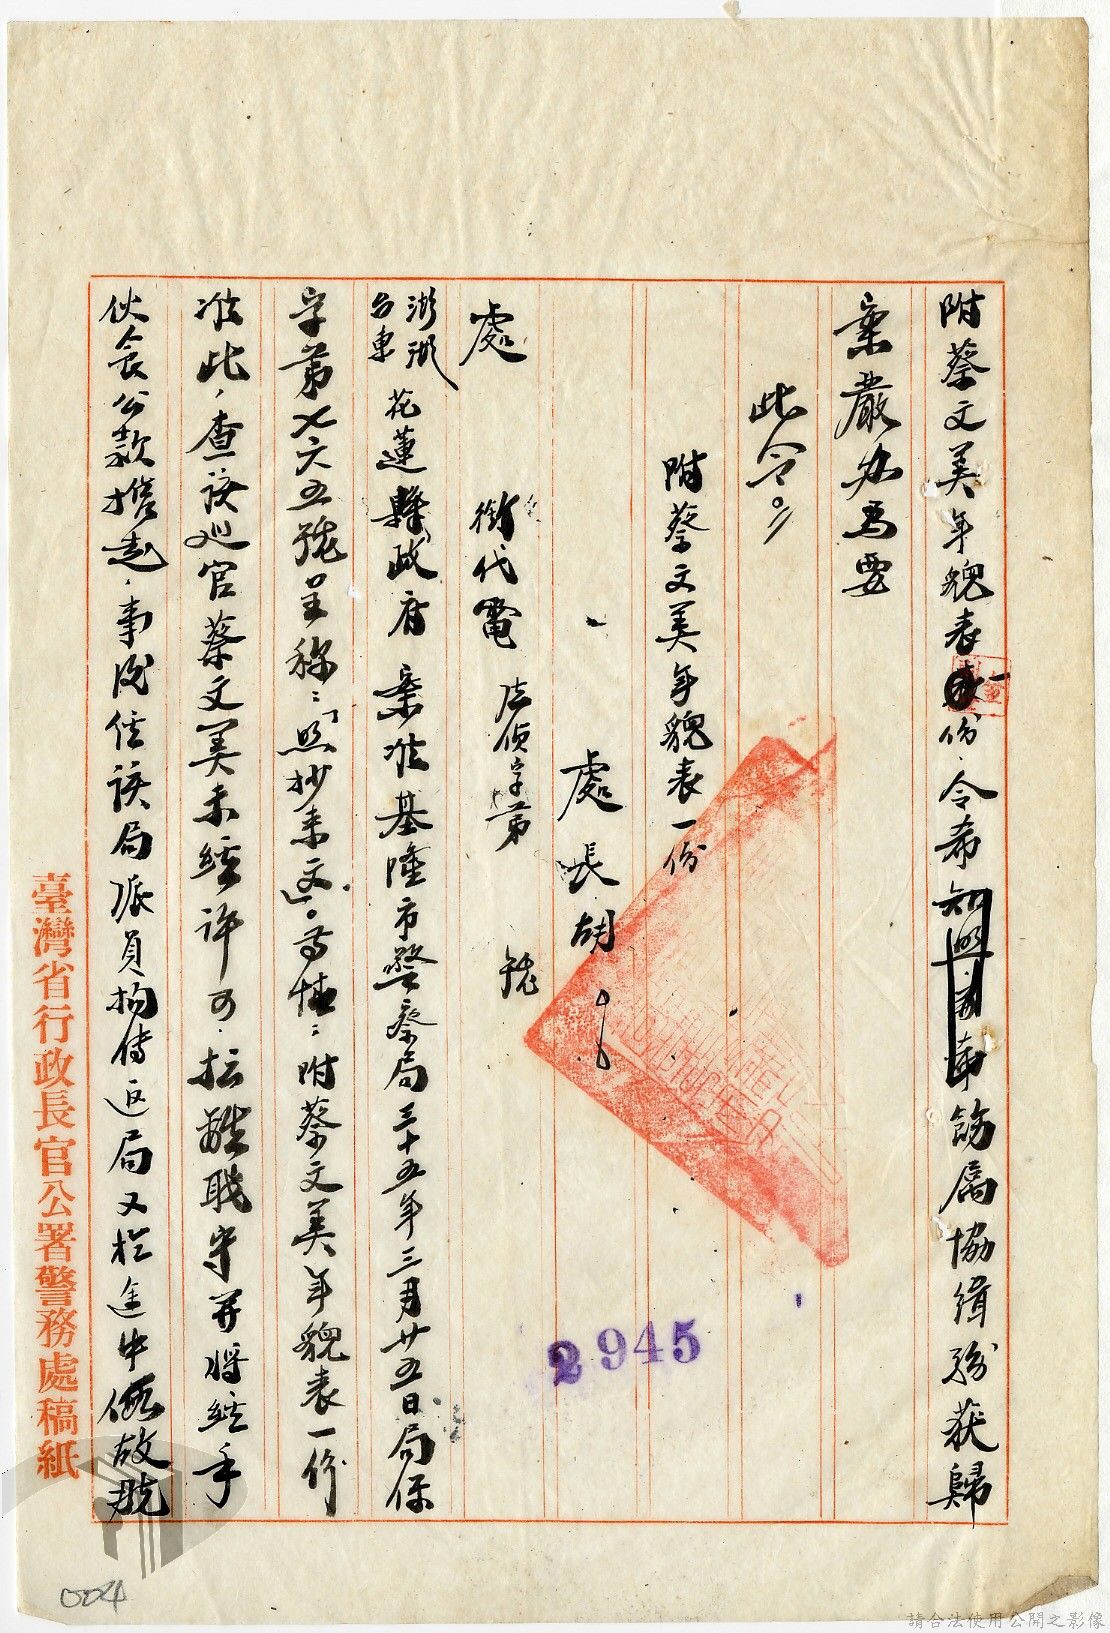 附蔡文美年貌表一份。令希飭屬協緝務獲歸
案嚴办為要
此令。
附蔡文美年貌表一份
處長胡
處 銜代電 法偵字第 號
澎湖 台東 花蓮縣政府 案准基隆市警察局三十五年三月廿五日局保
字第七六五號呈称：「照抄来文」。等情：附蔡文美年貌表一份
准此，查該巡官蔡文美未經許可．擅離職守并將經手
伙食公款攜走，事後經該局派員拘傳返局又於途中假故脱
臺灣省行政長官公署警務處稿紙
2945
004
請合法使用公開之影像